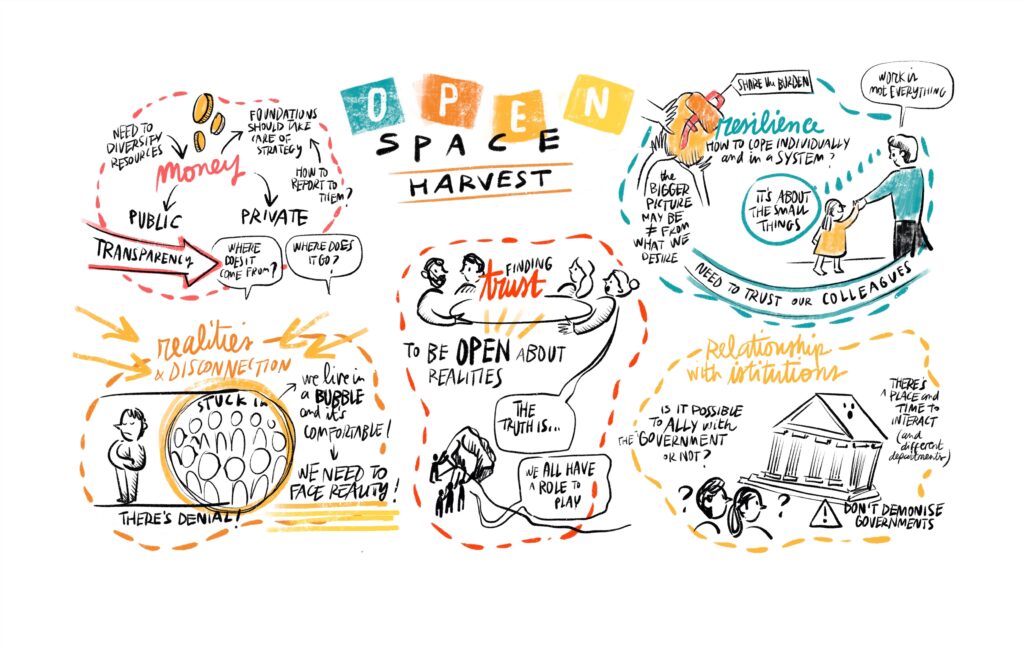 OPEN
SPACE
HARVEST
NEED TO
DIVERSIFY
RESOURCES
money
FOUNDATIONS
SHOULD TAKE
CARE OF
STRATEGY
HOW TO
REPORT TO
THEM?
PUBLIC
PRIVATE
TRANSPARENCY
WHERE
DOES IT
COME FROM?
WHERE DOES
IT GO?
SHARE the BURDEN
resilience
HOW TO COPE INDIVIDUALLY
and in a SYSTEM?
WORK is
not EVERYTHING
the
BIGGER
PICTURE
MAY BE
≠ FROM
WHAT WE
DESIRE
IT'S ABOUT
THE SMALL
THINGS
NEED TO TRUST OUR COLLEAGUES
realities
& DISCONNECTION
STUCK IN
we live in
a BUBBLE
and it's
COMFORTABLE!
WE NEED TO
FACE REALITY!
THERE'S DENIAL!
FINDING
trust
TO BE OPEN ABOUT
REALITIES
THE
TRUTH IS...
WE ALL HAVE
A ROLE TO
PLAY
Relationship
with istitutions
IS IT POSSIBLE
TO ALLY with
THE GOVERNMENT
OR NOT?
THERE'S
A PLACE and
TIME TO
INTERACT
(and
different
departments)
? ?
! DON'T DEMONISE
GOVERNMENTS